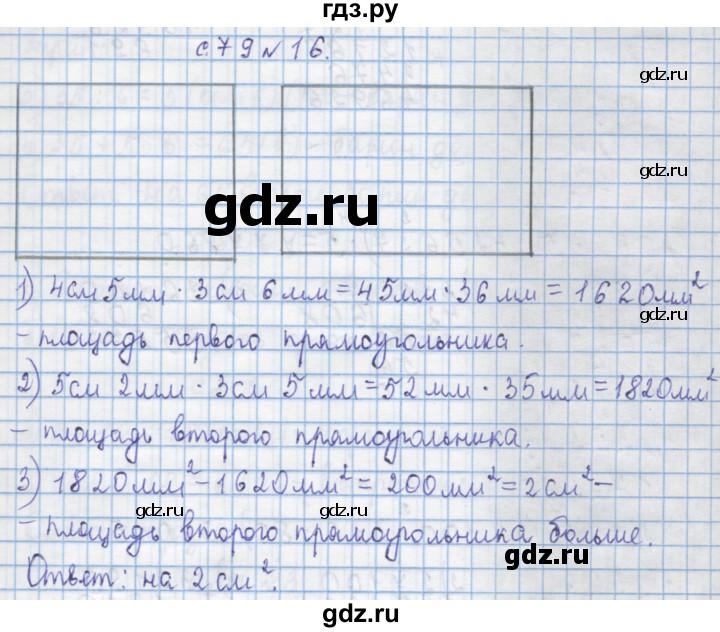 гдз.ру
с. 79 № 16.
gdz.ru
gdz.ru
gdz.ru
1) 4см 5мм · 3см 6мм = 45мм · 36мм = 1620мм²
– площадь первого прямоугольника.
gdz.ru
2) 5см 2мм · 3см 5мм = 52мм · 35мм = 1820мм²
– площадь второго прямоугольника.
gdz.ru
3) 1820мм² – 1620мм² = 200мм² = 2см² –
– площадь второго прямоугольника больше.
gdz.ru
Ответ: на 2см².
gdz.ru